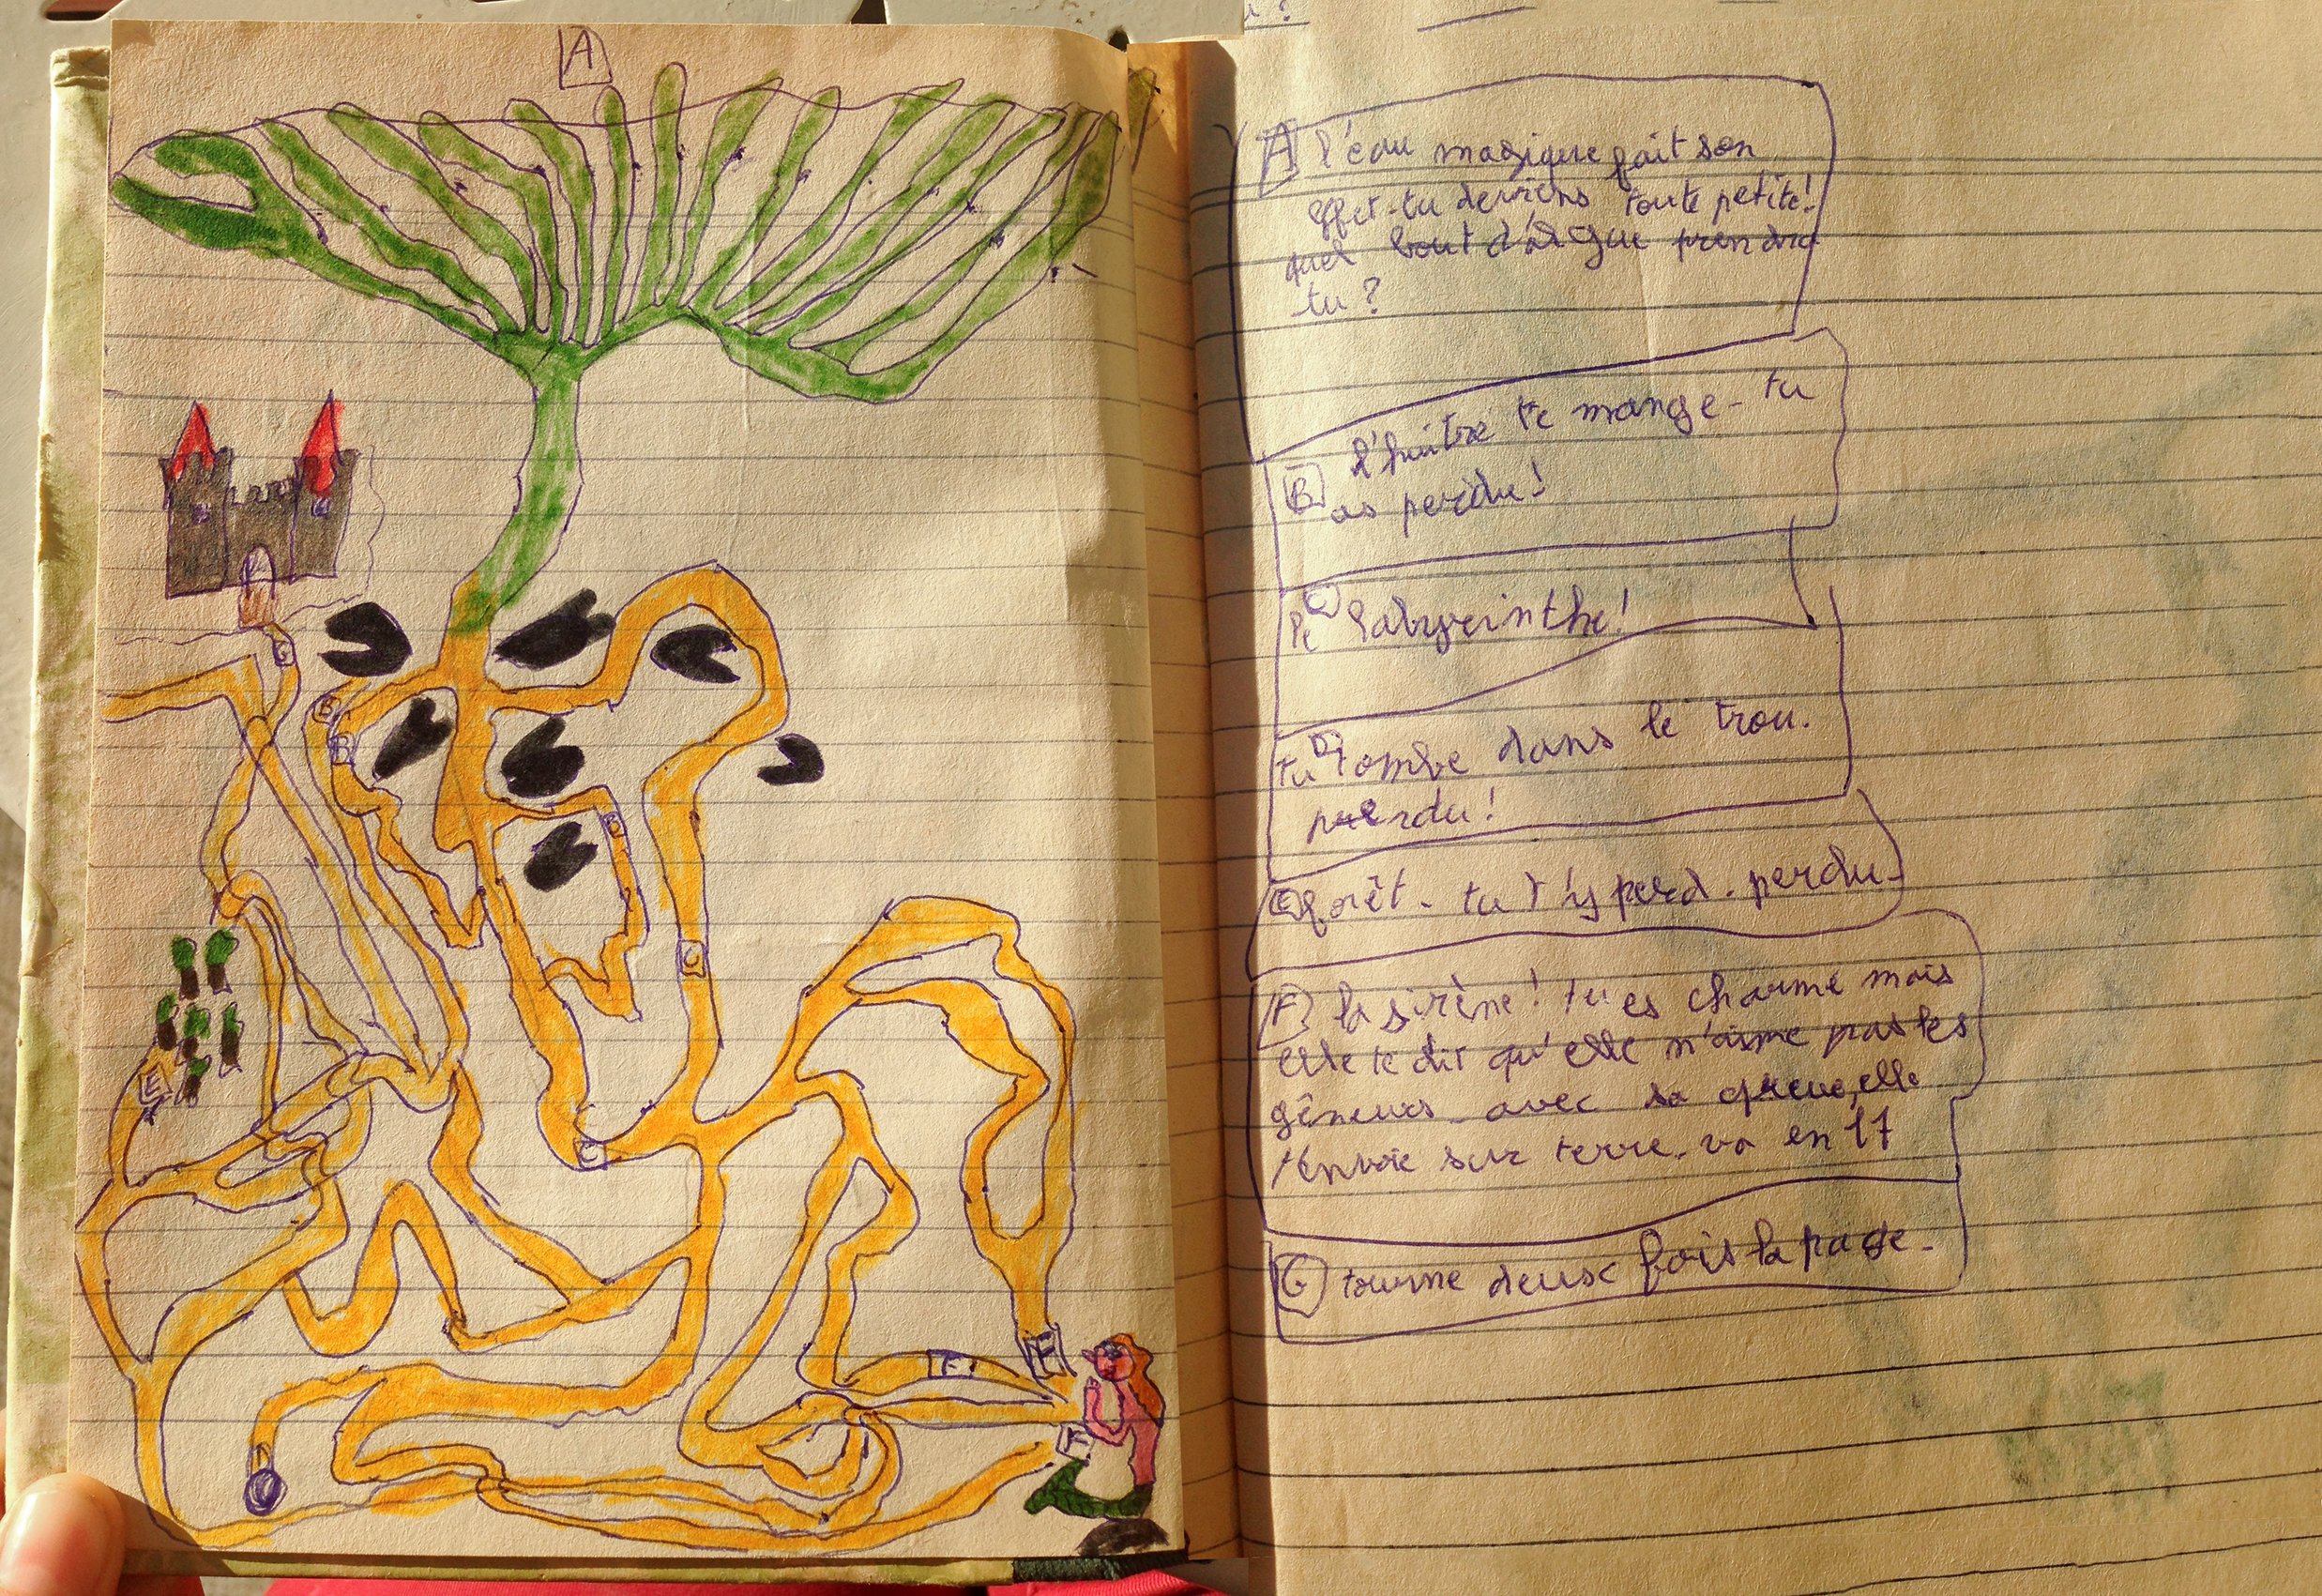 A
G
B
B
B
C
C
E
F
F
F
A l'eau magique fait son
effet - tu deviens toute petite!
quel bout d'algue prendra
tu ?
B l'huître te mange - tu
as perdu!
C
le labyrinthe!
D
tu tombe dans le trou.
perdu!
E forêt - tu t'y perd. perdu-
F la sirène! tu es charmé mais
elle te dit qu'elle n'aime pas les
gêneurs - avec sa queue, elle
t'envoie sur terre. va en 17
G tourne deux fois la page-